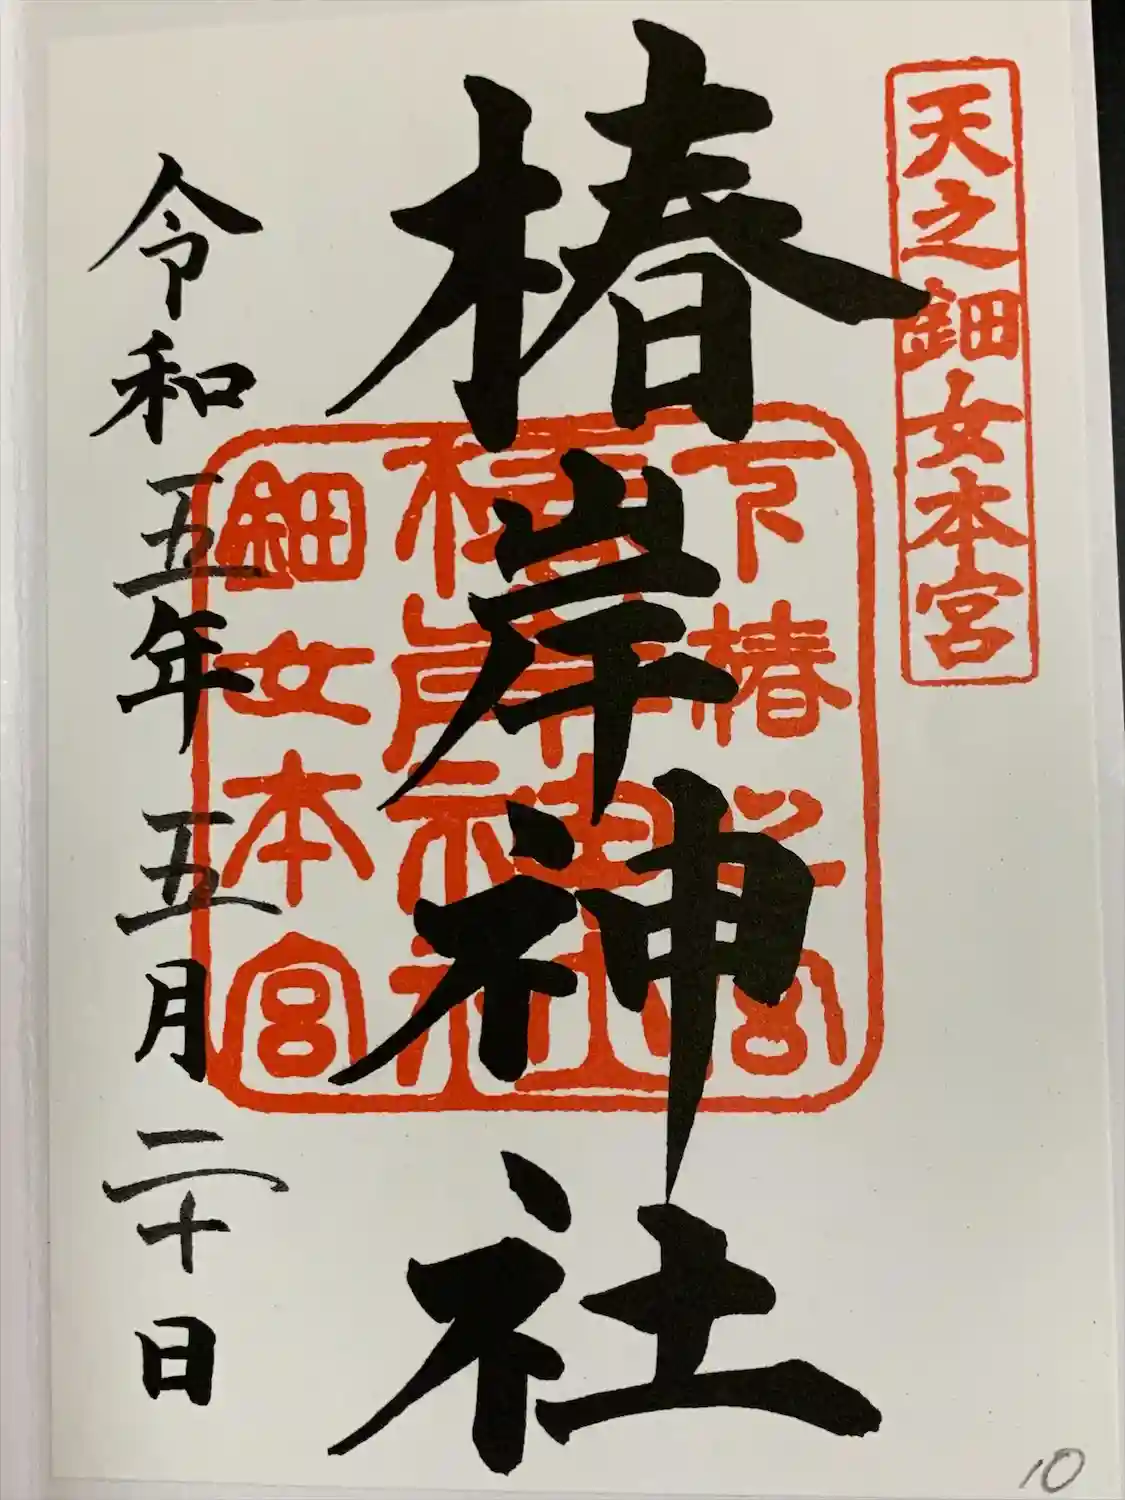 天之鈿女本宮
椿岸神社
下椿之宮
椿岸神社
鈿女本宮
令和五年五月二十日
10